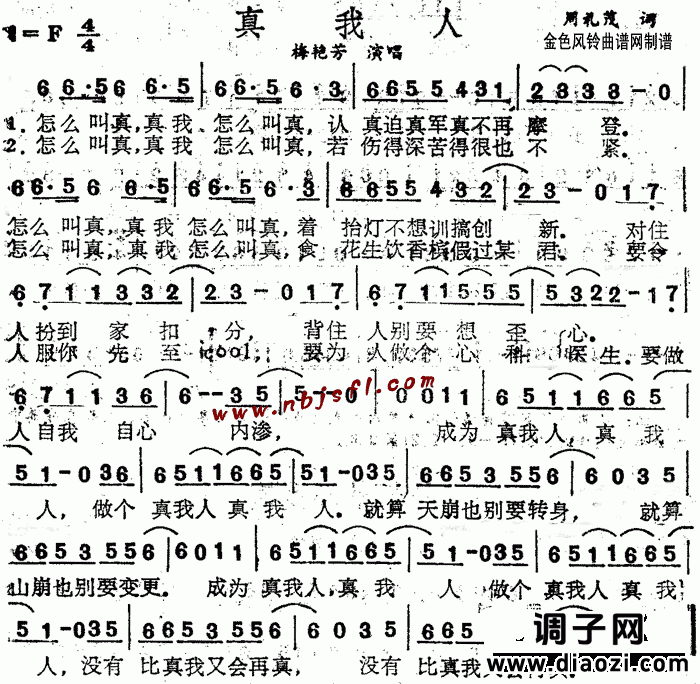 真我人
1=F 4/4
周礼茂 词
梅艳芳 演唱
金色风铃曲谱网制谱
66·56 6·5 | 66·56 6·3 | 66554331 | 2333-0
1.怎么叫真,真我 怎么叫真,认 真迫真军真不再 摩 登.
2.怎么叫真,真我 怎么叫真,若 伤得深苦得很也 不 紧.
66·56 6·5 | 66·56 6·3 | 6655432 | 23-017
怎么叫真,真我 怎么叫真,着 抬灯不想训搞创 新. 对住
怎么叫真,真我 怎么叫真,食 花生饮香槟假过某 君. 要令
6711332 | 23-017 | 6711555 | 5322-17
人扮到 家 扣 分, 背住 人别要 想 歪 心.
人服你 先 至 cool, 要为 人做个 心 科 医生.要做
671136 | 6--35 | 5--0 | 0011 | 6511665
人自我 自心 内渗, 成为 真我人 真 我
www.nbjsfl.com
51-036 | 6511665 | 51-035 | 6653556 | 6035
人, 做个 真我人 真 我 人.就算 天崩也别要转身, 就算
6653556 | 6011 | 6511665 | 51-035 | 6511665
山崩也别要变更. 成为 真我人,真 我 人 做个 真我人 真我
51-035 | 6653556 | 6035 | 665
人,没有 比真我又会再真, 没有 比真我又会再真.
调子网
www.diaozi.com